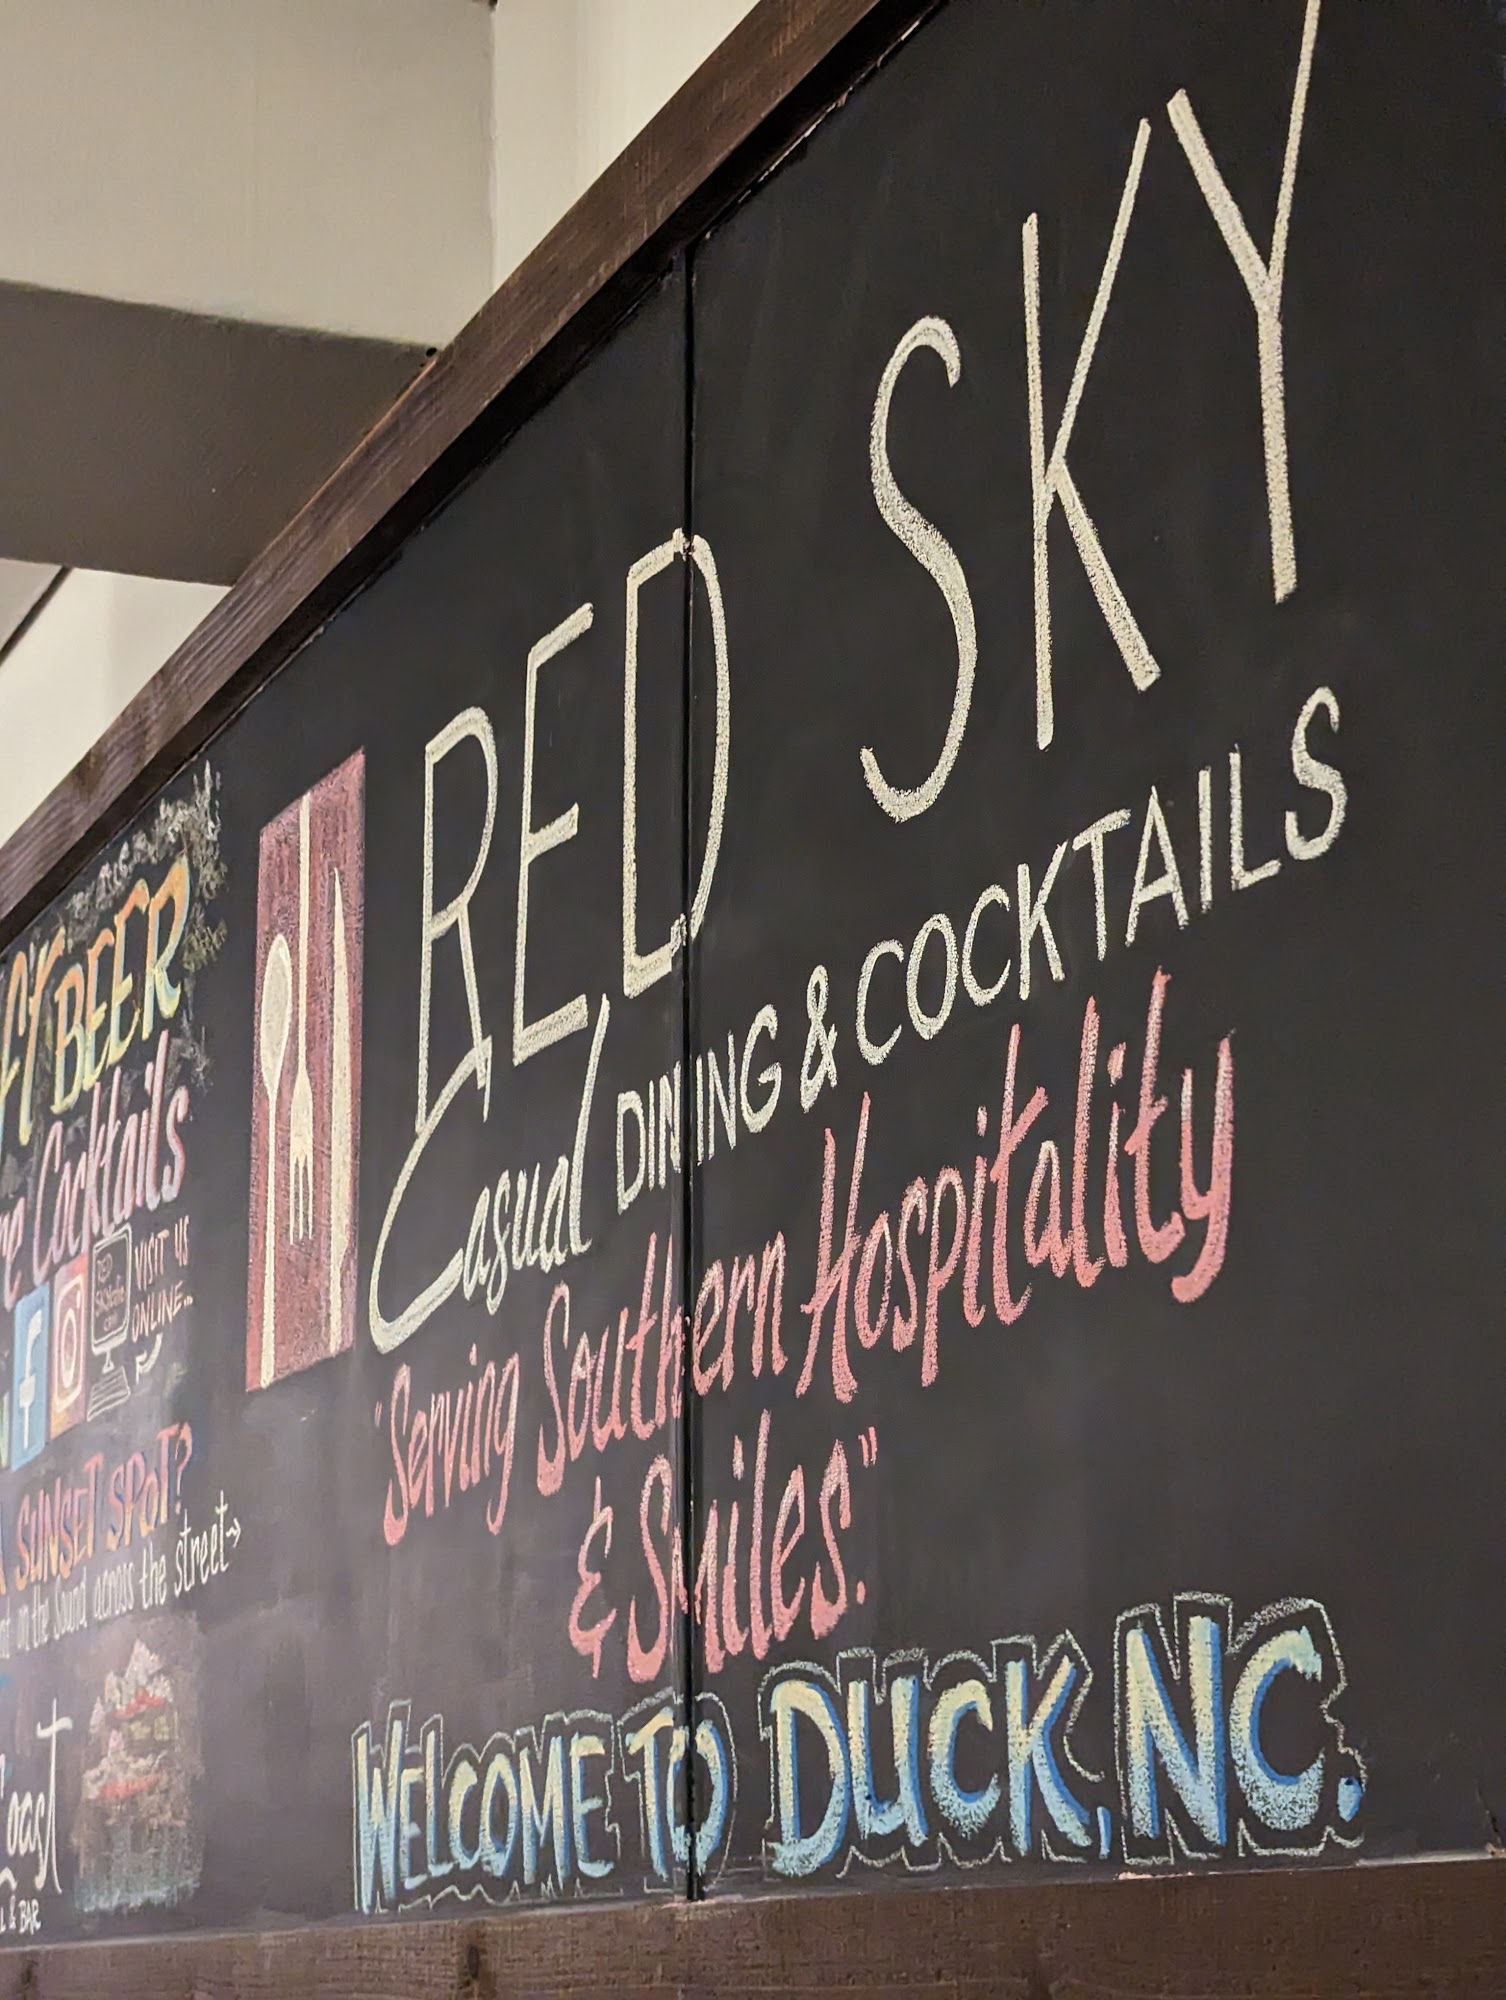 BEER
Cocktails
VISIT US
ONLINE...
SUNSET SPOT?
in the Sound across the street→
Coast
& BAR
RED SKY
Casual DINING & COCKTAILS
"Serving Southern Hospitality
& Smiles."
WELCOME TO DUCK, NC.